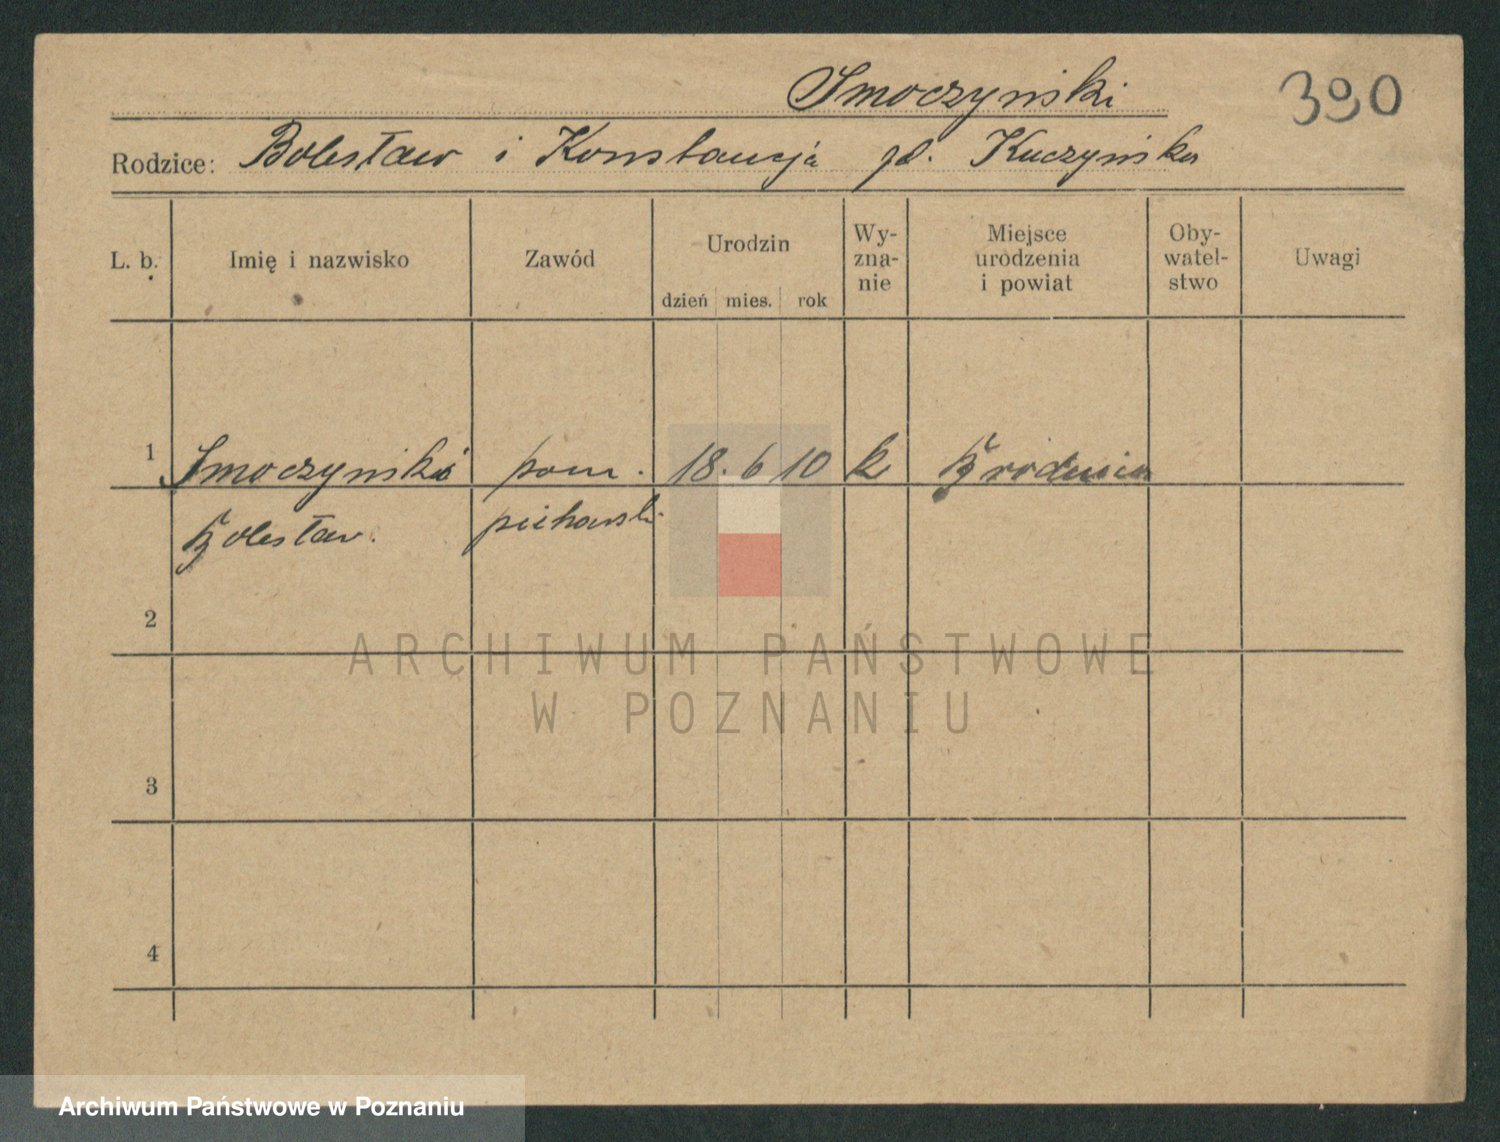 Smoczyński
390
Rodzice: Bolesław i Konstancja zd. Kuczyńska
L. b.
Imię i nazwisko
Zawód
Urodzin
dzień mies. rok
Wy-
zna-
nie
Miejsce
urodzenia
i powiat
Oby-
watel-
stwo
Uwagi
1 Smoczyński pom. 18. 6 10 k
Bolesław. piekarski
2
3
4
ARCHIWUM PAŃSTWOWE
W POZNANIU
Archiwum Państwowe w Poznaniu